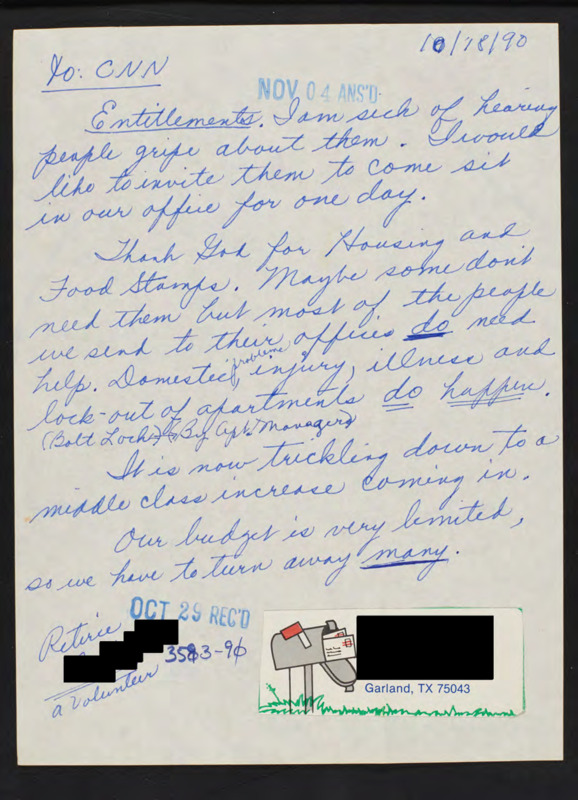 10/18/90
To: CNN
NOV 04 ANS'D
Entitlements. I am sick of hearing
people gripe about them. I would
like to invite them to come sit
in our office for one day.
Thank God for Housing and
Food Stamps. Maybe some don't
need them but most of the people
we send to their offices do need
help. Domestic problems, injury, illness and
lock-out of apartments do happen.
(Bolt Locks By Apt. Managers)
It is now trickling down to a
middle class increase coming in.
Our budget is very limited,
so we have to turn away many.
OCT 29 REC'D
Retiree
3583-90
a Volunteer
Garland, TX 75043